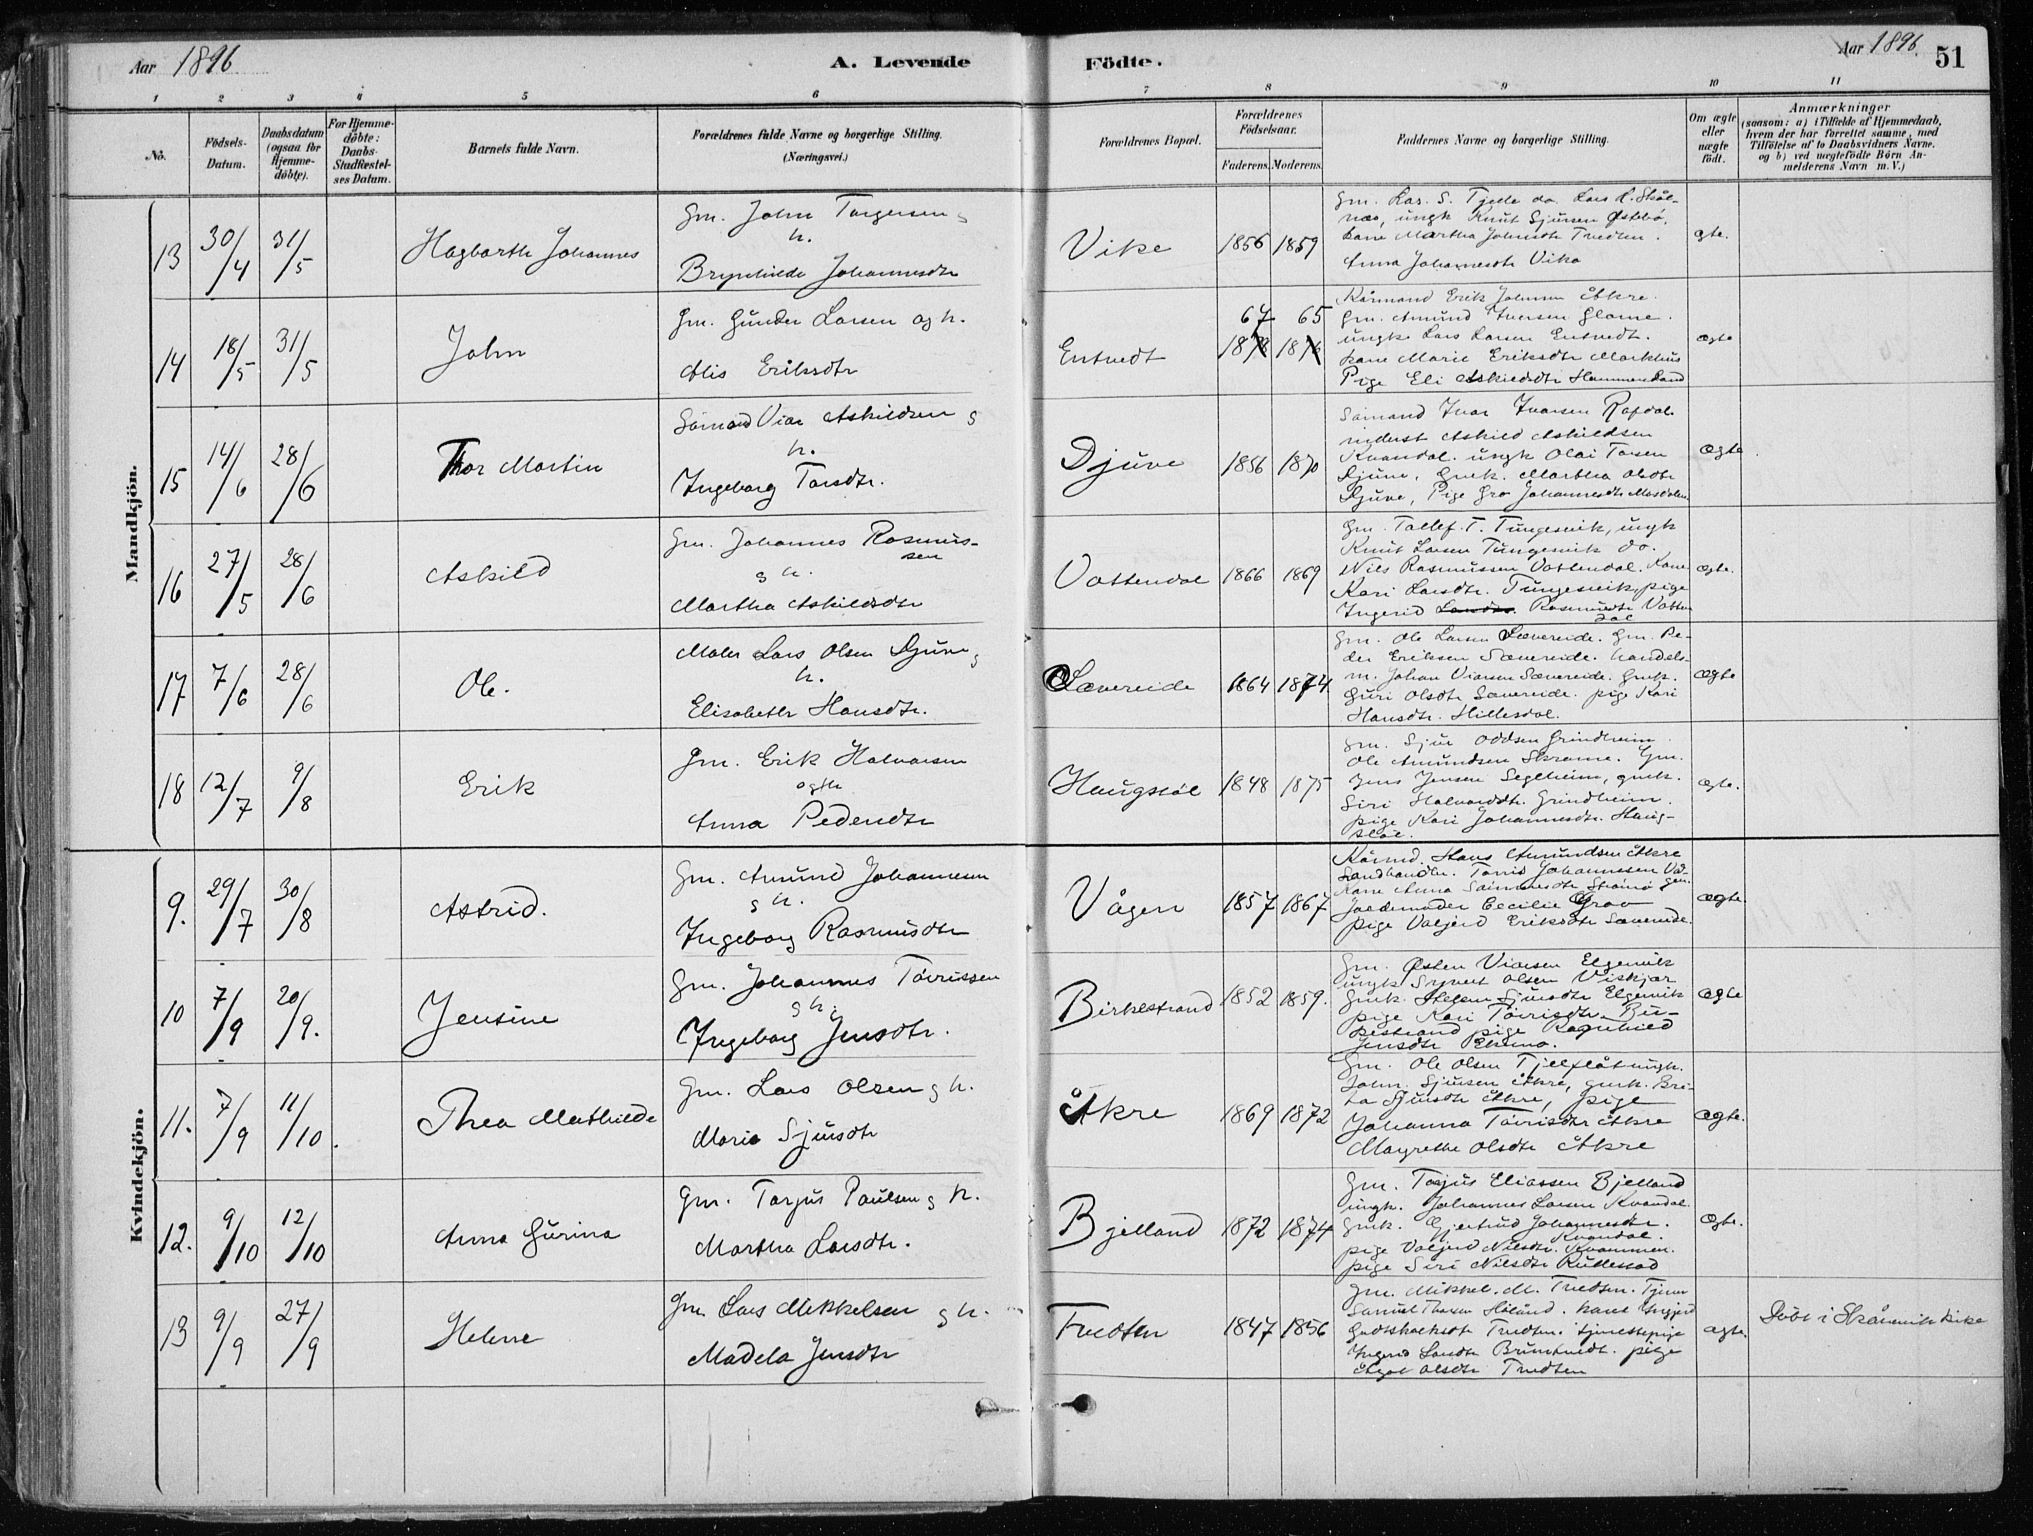 Aar 1896
A. Levende
Födte.
Aar 1896.
51
1 2 3 4 5 6 7 8 9 10 11
No.
Födsels-Datum.
Daabsdatum (ogsaa for Hjemme-döbte).
For Hjemme-döbte: Daabs-Stadfæstel-ses Datum.
Barnets fulde Navn.
Forældrenes fulde Navne og borgerlige Stilling. (Næringsvei.)
Forældrenes Bopæl.
Forældrenes Födselsaar.
Faderens. Moderens.
Faddernes Navne og borgerlige Stilling.
Om ægte eller uægte födt.
Anmærkninger
(saasom: a) i Tilfælde af Hjemmedaab, hvem der har forrettet samme, med Tilföielse af to Daabsvidners Navne. og b) ved uægtefödte Börn An-melderens Navn m.V.)
Mandkjön.
13 30/4 31/5 Hagbarth Johannes
Gm. John Torgersen g
h.
Brynhilde Johannesdtr
Vike 1856 1859
Gm. Lar. S. Tjelle do. Lars L. Skål-
næs, ungk Knut Sjursen Østebø,
kone Martha Johnsdtr Tvedten.
Anna Johannesdtr Vika
ægte.
14 18/5 31/5 John
Gm. Gunder Larsen og h.
Alis Eriksdtr
Entvedt 67 65
Kårmand Erik Johnsen Åkre.
Gm. Amund Iversen Glame.
ungk Lars Larsen Entvedt.
kone Marie Eriksdtr Markhus
Pige Eli Askildsdtr Hammersland
ægte
15 14/6 28/6 Thor Martin
Sømand Viar Askildsen g
h.
Ingeborg Torsdtr.
Djuve 1856 1870
Sømand Ivar Ivarsen Rafdal.
inderst Askild Askildsen
Kvandal. ungk Olai Torsen
Djuve, Gmk. Martha Olsdtr
Djuve, Pige Gro Johannesdtr Mosdalen
Ægte.
16 27/5 28/6 Askild
Gm. Johannes Rasmus-
sen
g h.
Martha Askildsdtr
Vattendal 1866 1869
Gm. Tollef. T. Tungesvik, ungk
Knut Larsen Tungesvik do.
Nils Rasmussen Vattendal. Kone
Kari Larsdtr. Tungesvik, pige
Ingerid Rasmusdtr Vatten
dal
ægte.
17 7/6 28/6 Ole.
Maler Lars Olsen Djuve g
h.
Elisabeth Hansdtr.
Sævereide 1864 1874
Gm. Ole Larsen Sævereide. Gm. Pe-
der Eriksen Sævereide. handels-
m. Johan Viarsen Sævereide. Gmk.
Guri Olsdtr Sævereide. pige Kari
Hansdtr. Hillesdal.
Ægte
18 12/7 9/8 Erik
Gm. Erik Halvorsen
og h
Anna Pedersdtr
Haugsdal 1848 1875
Gm. Sjur Oddsen Grindheim.
Ole Amundsen Skrome. Gm.
Jens Jensen Seglheim, gmk.
Siri Halvorsdtr. Grindheim.
pige Kari Johannesdtr. Haug-
sdal.
Ægte.
Kvindekjön.
9. 29/7 30/8 Astrid.
Gm. Amund Johannesen
g h.
Ingeborg Rasmusdtr
Vågen 1857 1867
Kårmd. Hans Amundsen Åkre
Landhandler. Tørris Johannesen Vå-
gen.
Kone Anna Strømø
Jordemoder Cecilie Grov
pige Valjerd Eriksdtr Sævereide.
Ægte.
10 7/9 20/9. Jensine
Gm. Johannes Tørrissen
g h.
Ingeborg Jensdtr.
Birkestrand 1852 1859.
Gm. Østen Viarsen Elgervik
ungk Syvert Olsen Viskjær
Gmk. Sjursdtr Elgervik
pige Kari Tørrisdtr. Bir-
kestrand pige Ragnhild
Jensdtr
Ægte
11. 7/9 11/10. Thea Mathilde
Gm. Lars Olsen g h.
Marie Sjursdtr
Åkre 1869 1872
Gm. Ole Olsen Tjelflåt ungk.
John Sjursen Åkre, gmk. Bri-
ta Sjursdtr Åkre, pige
Johanna Tørrisdtr Åkre
Magrethe Olsdtr Åkre
Ægte.
12. 9/10 12/10 Anna Gurina
Gm. Torjus Paulsen g h.
Martha Larsdtr.
Bjelland 1872 1874
Gm. Torjus Eliassen Bjelland
ungk. Johannes Larsen Kvandal
Gmk. Gjertrud Johannesdtr.
Kvandal.
pige Valjerd Nilsdtr. Kvammen.
pige Siri Nilsdtr Rullestad
Ægte.
13 9/9 27/9 Helene
Gm Lars Mikkelsen g h.
Madela Jensdtr
Tvedten 1847 1856
Gm. Mikkel. M. Tvedten. Tjener
Samuel Thorsen Høland. kone Ingjerd
Gudtskalksdtr Tvedten. tjenestepige
Ingerid Larsdtr Bruntvedt. pige
Olsdtr Tvedten
ægte.
Døbt i Skånevik kirke